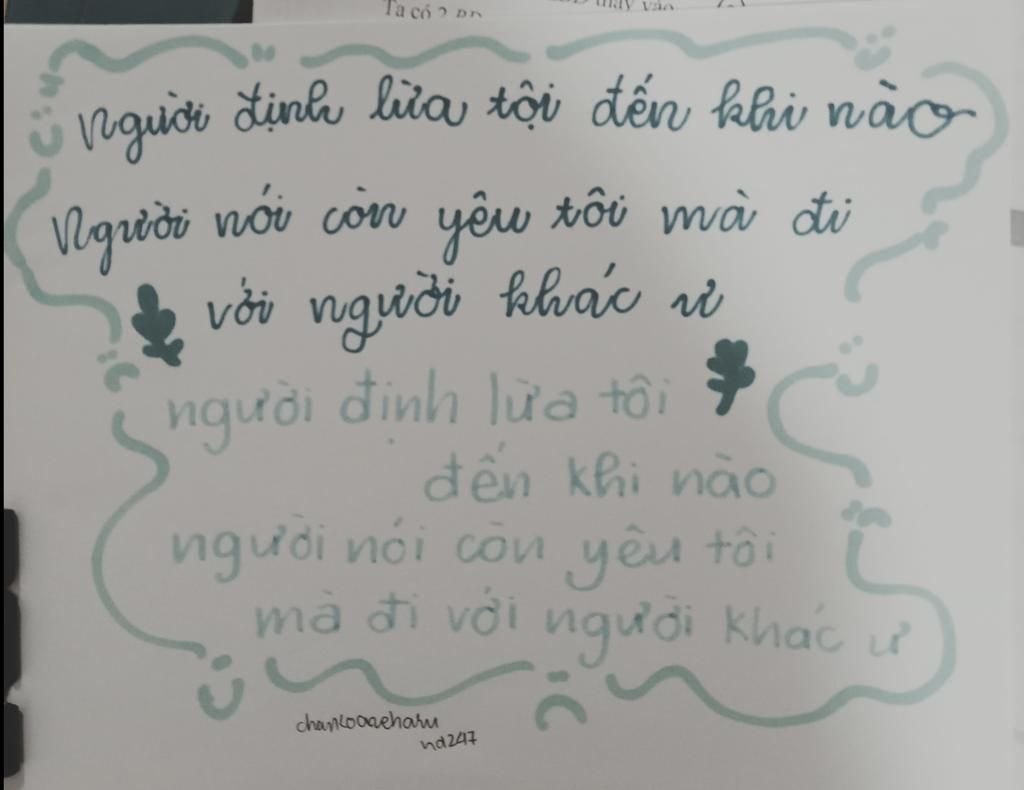 Ta có 2
Người định lừa tội đến khi nào
Người nói còn yêu tôi mà đi
với người khác ư
người định lừa tôi
đến khi nào
người nói còn yêu tôi
mà đi với người khác ư
nd247